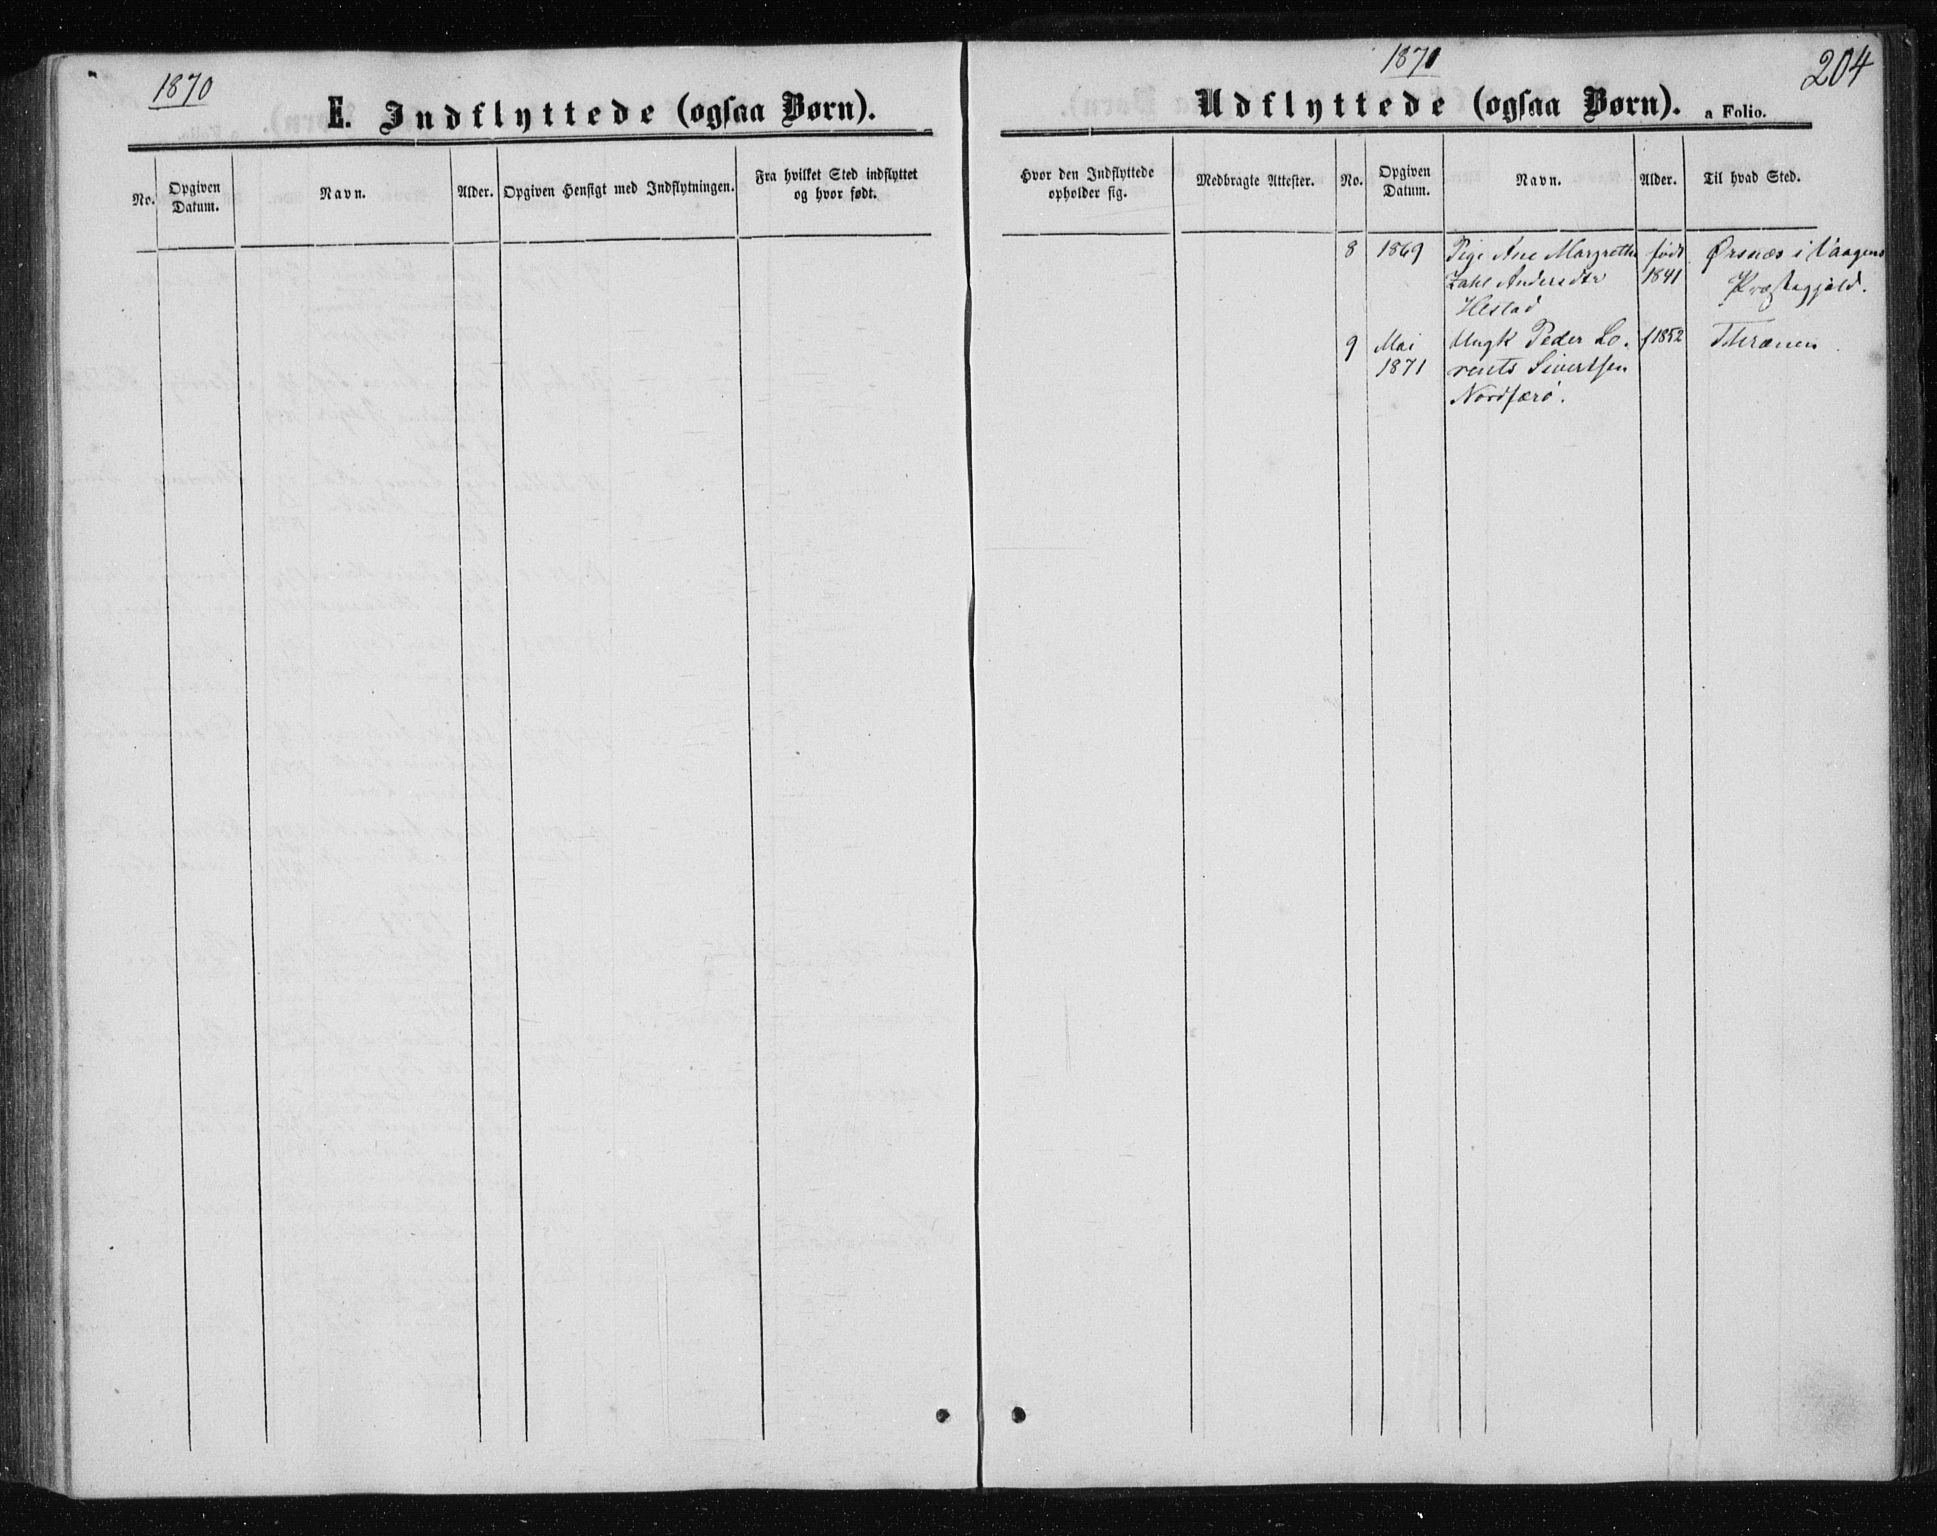 1870
E. Indflyttede (ogsaa Børn).
No.
Opgiven
Datum.
Navn.
Alder.
Opgiven Hensigt med Indflytningen.
Fra hvilket Sted indflyttet
og hvor født.
1871
204
Udflyttede (ogsaa Børn). a Folio.
Hvor den Indflyttede
opholder sig.
Medbragte Attester.
No.
Opgiven
Datum.
Navn.
Alder.
Til hvad Sted.
8 1869 Pige Ane Margrethe født Ørsnæs i Vaagens
Zahl Andersdtr 1841 Præstegjæld.
Hestad
9 Mai Ungk Peder Lo- f 1852 Thrænen.
1871 rents Sivertsen
Nordfærø.